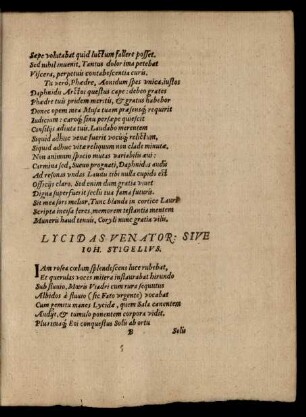 Sæpe volutabat quid luctum fallere posset,
Sed nihil inuenit, Tantus dolor ima petebat
Viscera, perpetuis contabescentia curis.
Tu verò, Phædre, Aonidum spes vnica, iustos
Daphnido Arctoi questus cape: debeo grates
Phædre tuis pridem meritis, & gratus habebor
Donec opem mea Musa tuam præsensq́; requirit
Iudicium: caroq́; sinu persæpe quiescit
Consilijs adiuta tuis, Laudabo merentem
Siquid adhuc venæ fuerit vocúq́; relictum,
Siquid adhuc vitæ reliquum non clade minutæ,
Non animum spacio mutas variabilis æui:
Carmina sed, Sueuo prognati, Daphnidis audis
Ad resonas vndas Laudu tibi nulla cupido est
Officijs claro. Sed enim dum gratia viuet
Digna superfuerit seclis tua fama futuris.
Sit mea sors melior, Tunc blanda in cortice Lauri
Scripta incisa feres, memorem testantia mentem
Muneris haud tenuis, Coryli nunc gratia vilis,
LYCIDAS VENATOR: SIVE
IOH. STIGELIVS.
IAm rosea cœlum splendescens luce rubebat,
Et querulas voces misera instaurabat hirundo
Sub fluuio, Maris Viadri cum rura sequutus
Albidos à fluuio (sic Fata vrgente) vocabat
Cum gemitu manes Lycidæ, quem Sala canentem
Audijt, & tumulo ponentem corpora vidit,
Pluraq́; Eoi conquestus Solis ab ortu
B Solis